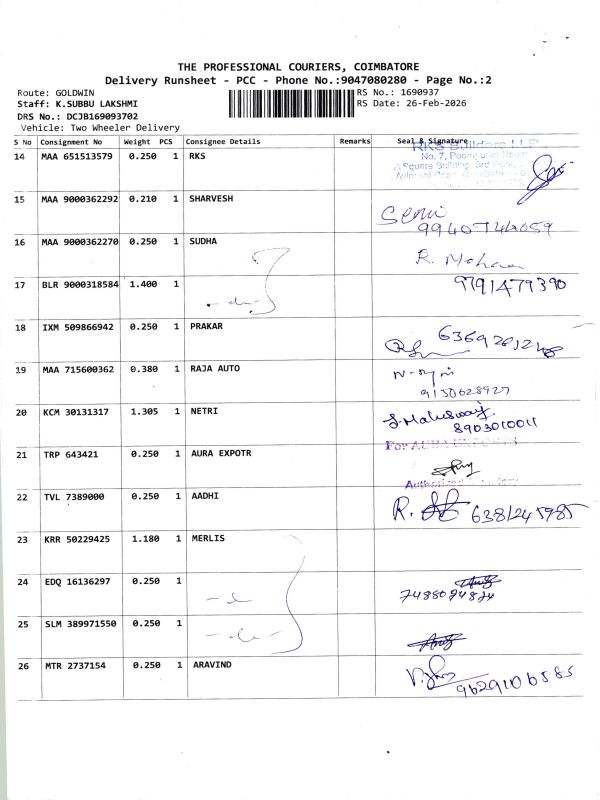 THE PROFESSIONAL COURIERS, COIMBATORE
Delivery Runsheet - PCC - Phone No.:9047080280 - Page No.:2
Route: GOLDWIN
Staff: K.SUBBU LAKSHMI
DRS No.: DCJB169093702
Vehicle: Two Wheeler Delivery
RS No.: 1690937
RS Date: 26-Feb-2026
S No Consignment No Weight PCS Consignee Details Remarks Seal & Signature
14 MAA 651513579 0.250 1 RKS
RKS Builders LLP
No. 7,
15 MAA 9000362292 0.210 1 SHARVESH
9940744059
16 MAA 9000362270 0.250 1 SUDHA
R. Mohan
17 BLR 9000318584 1.400 1
9791479390
18 IXM 509866942 0.250 1 PRAKAR
19 MAA 715600362 0.380 1 RAJA AUTO
9150628927
20 KCM 30131317 1.305 1 NETRI
8903010011
21 TRP 643421 0.250 1 AURA EXPOTR
For AURA
22 TVL 7389000 0.250 1 AADHI
R. 6381245985
23 KRR 50229425 1.180 1 MERLIS
24 EDQ 16136297 0.250 1
7488074874
25 SLM 389971550 0.250 1
26 MTR 2737154 0.250 1 ARAVIND
9629106585